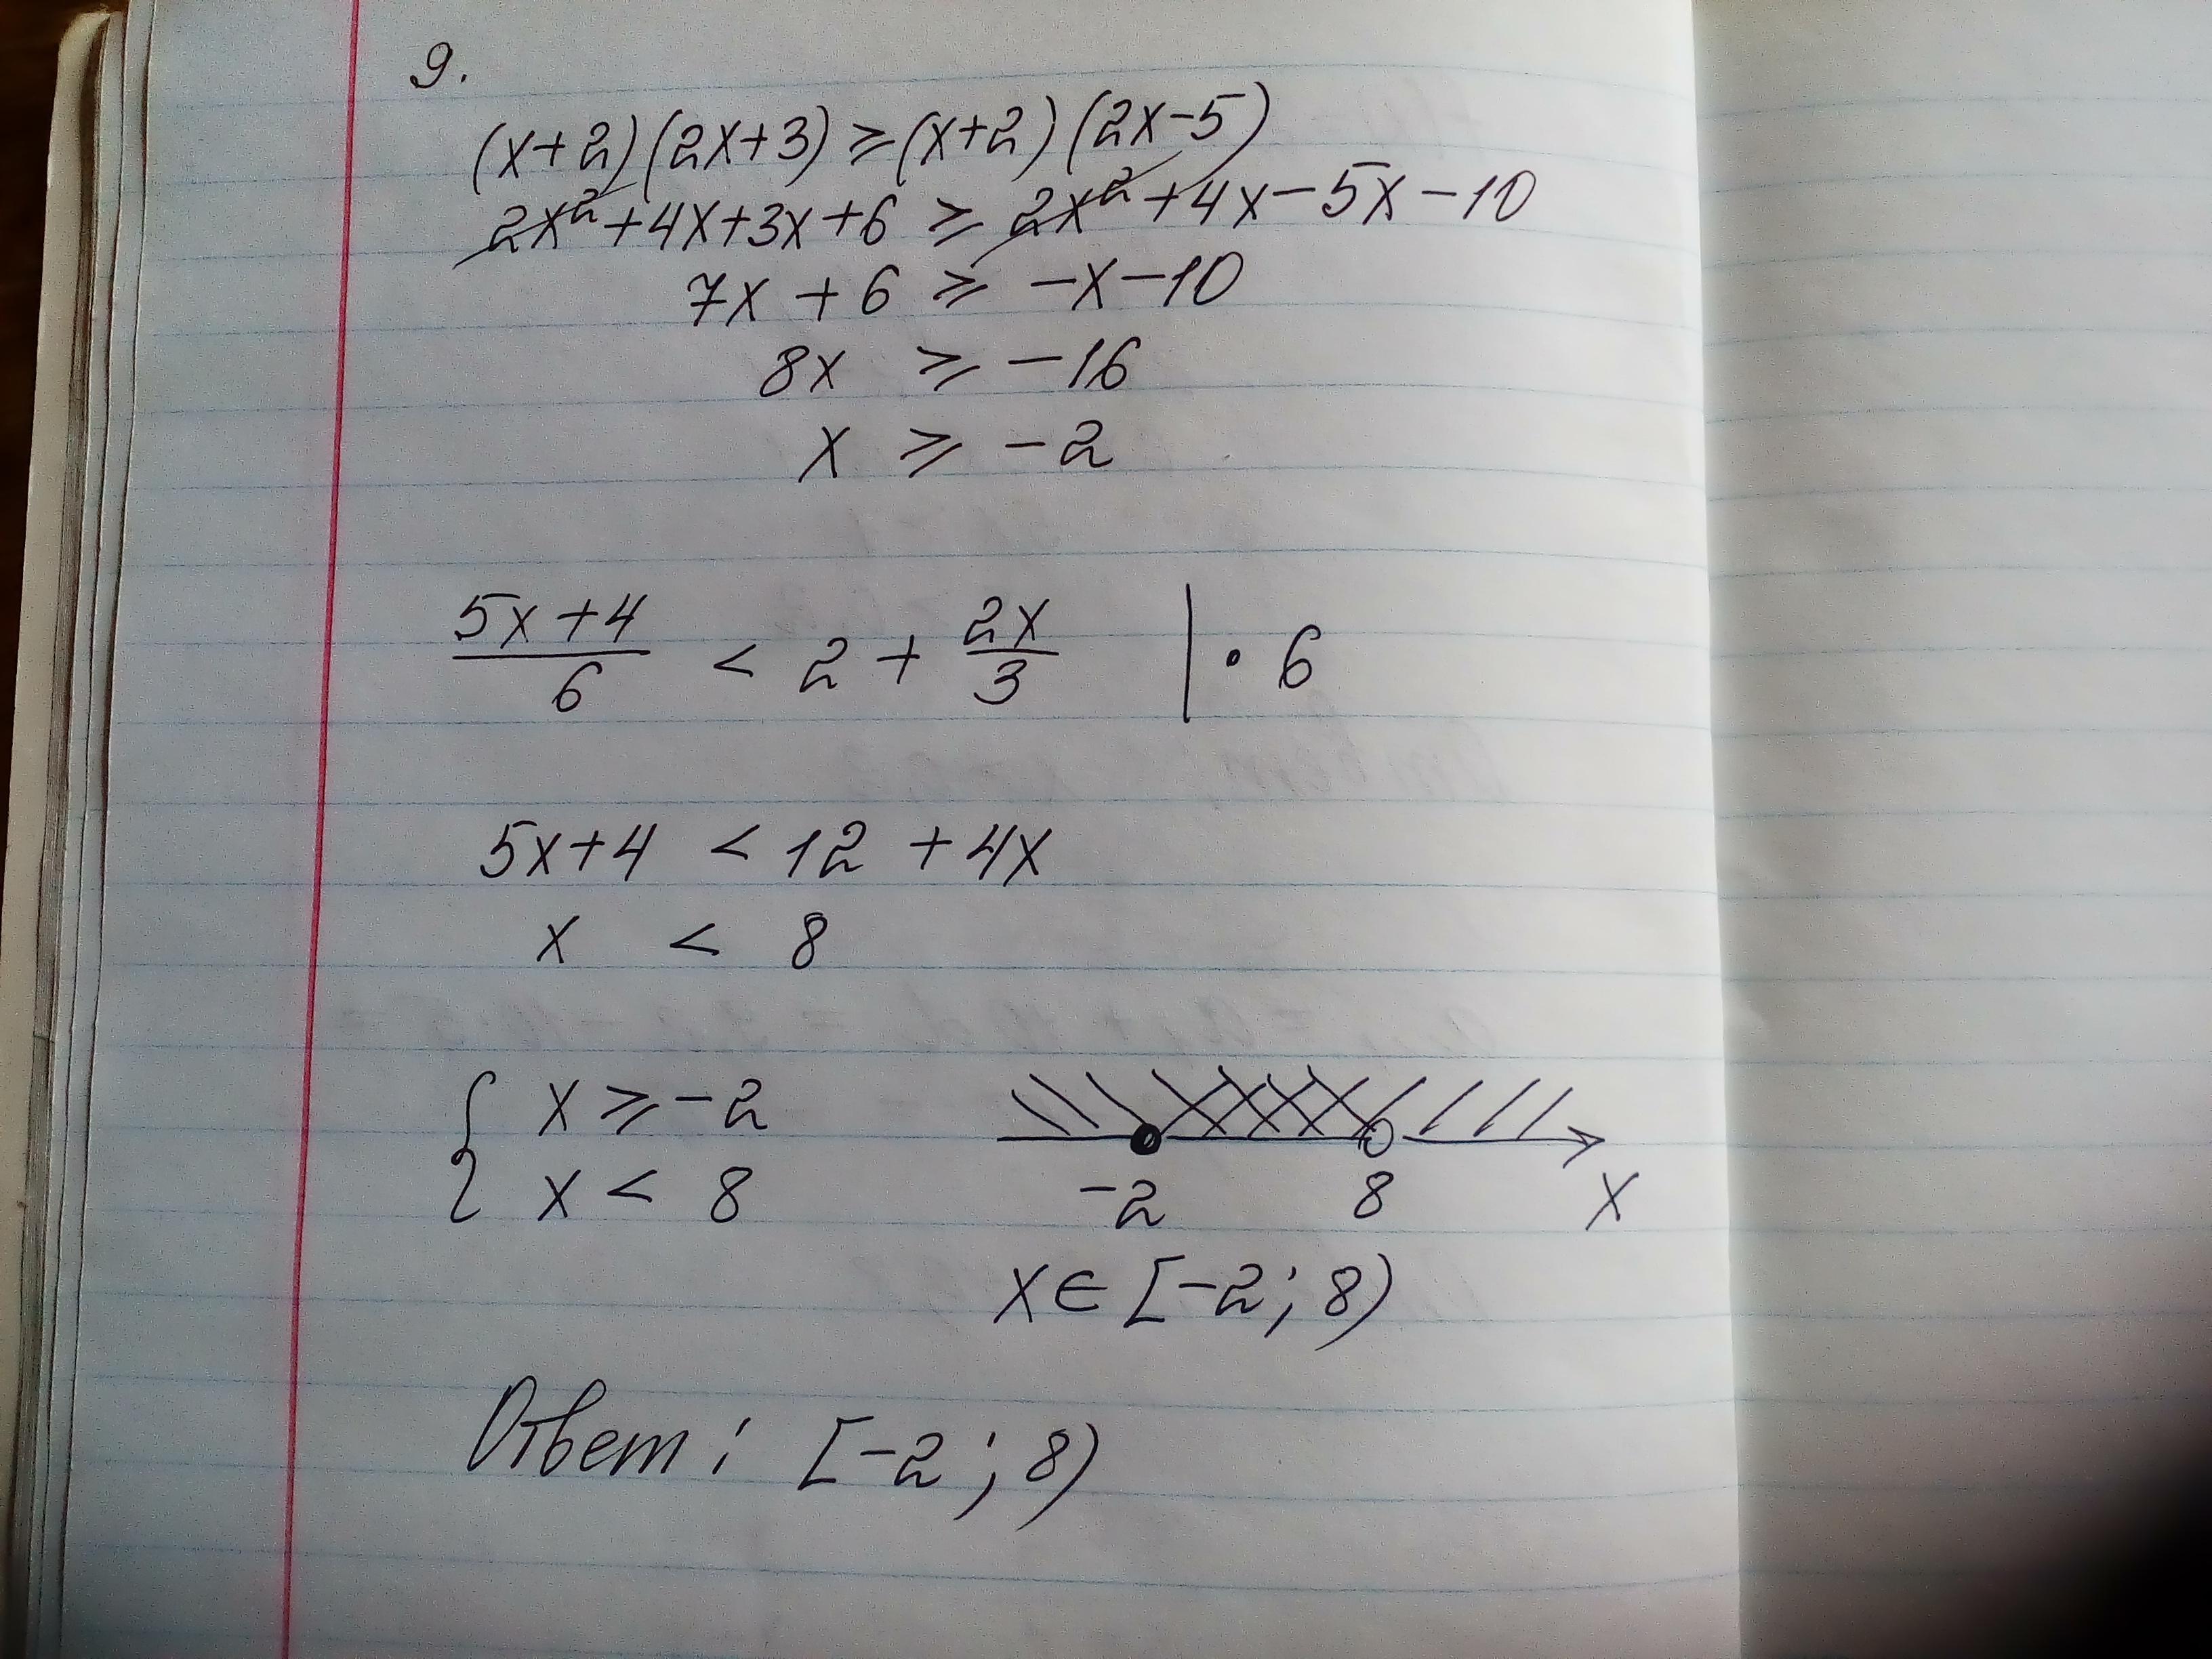 9.
(x+2)(2x+3) ≥ (x+2)(2x-5)
2x² + 4x + 3x + 6 ≥ 2x² + 4x - 5x - 10
7x + 6 ≥ -x - 10
8x ≥ -16
x ≥ -2
(5x+4)/6 < 2 + 2x/3 | · 6
5x+4 < 12 + 4x
x < 8
{ x ≥ -2
x < 8
-2 8 x
x ∈ [-2; 8)
Ответ: [-2; 8)